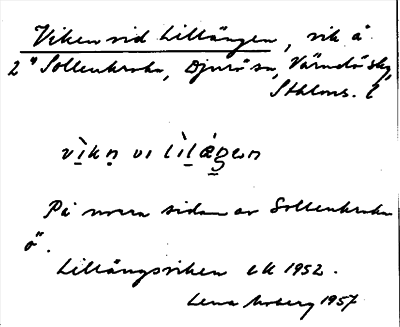 Viken vid Lillängen, vik å
2" Sollenkroka, Djurö sn, Värmdö skg,
Sthlms. l
vìkn vi lìlǽgen
På norra sidan av Sollenkroka
ö.
Lillängsviken ek 1952.
Lena Moberg 1957